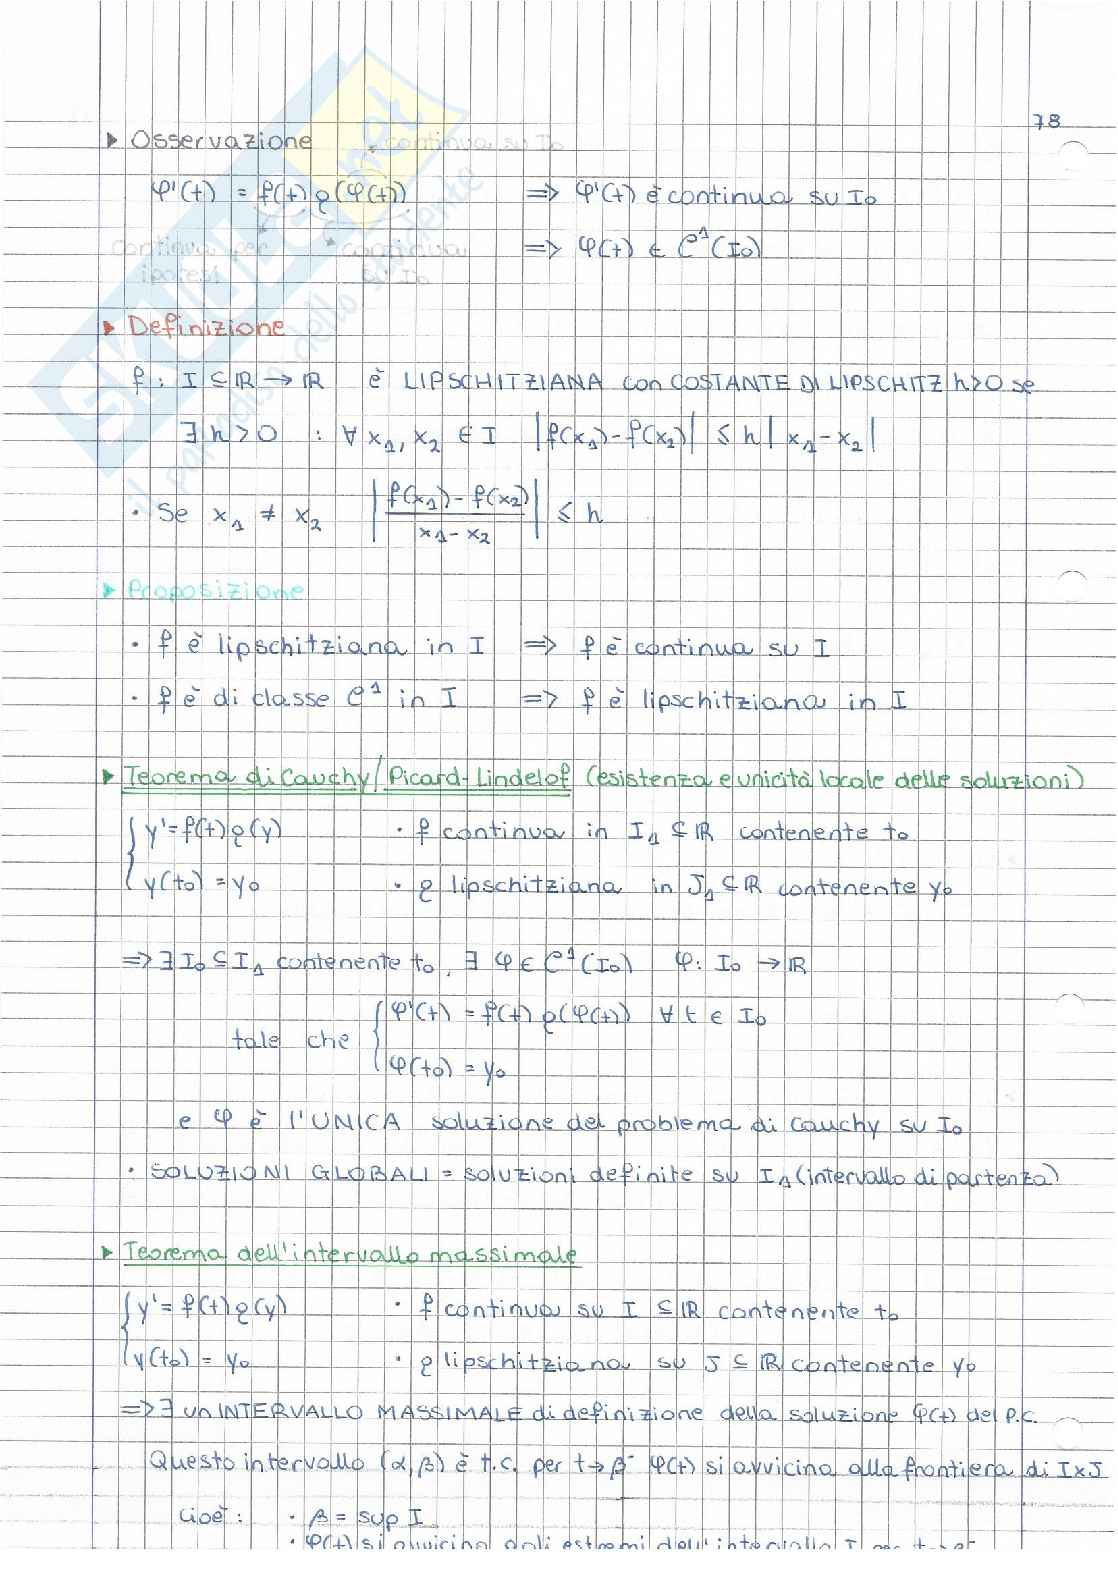 78
▸ Osservazione continua su I₀
φ'(t) = f(t) g(φ(t)) ⇒ φ'(t) è continua su I₀
continua per ipotesi continua su I₀ ⇒ φ(t) ∈ C¹(I₀)
▸ Definizione
f : I ⊆ ℝ → ℝ è LIPSCHITZIANA con COSTANTE DI LIPSCHITZ h>0 se
∃ h > 0 : ∀ x₁, x₂ ∈ I |f(x₁) - f(x₂)| ≤ h | x₁ - x₂ |
• Se x₁ ≠ x₂ |(f(x₁) - f(x₂))/(x₁ - x₂)| ≤ h
▸ Proposizione
• f è lipschitziana in I ⇒ f è continua su I
• f è di classe C¹ in I ⇒ f è lipschitziana in I
▸ Teorema di Cauchy/Picard-Lindelof (esistenza e unicità locale delle soluzioni)
{ y' = f(t) g(y) • f continua in I₁ ⊆ ℝ contenente t₀
y(t₀) = y₀ • g lipschitziana in J₁ ⊆ ℝ contenente y₀
⇒ ∃ I₀ ⊆ I₁ contenente t₀, ∃ φ ∈ C¹(I₀) φ: I₀ → ℝ
tale che { φ'(t) = f(t) g(φ(t)) ∀ t ∈ I₀
φ(t₀) = y₀
e φ è l'UNICA soluzione del problema di Cauchy su I₀
• SOLUZIONI GLOBALI = soluzioni definite su I₁ (intervallo di partenza)
▸ Teorema dell'intervallo massimale
{ y' = f(t) g(y) • f continua su I ⊆ ℝ contenente t₀
y(t₀) = y₀ • g lipschitziana su J ⊆ ℝ contenente y₀
⇒ ∃ un INTERVALLO MASSIMALE di definizione della soluzione φ(t) del P.C.
Questo intervallo (α, β) è t.c. per t → β⁻ φ(t) si avvicina alla frontiera di I×J
cioè: • β = sup I
• φ(t) si avvicina agli estremi dell'intervallo
SKUOLA.net
il paradiso dello studente